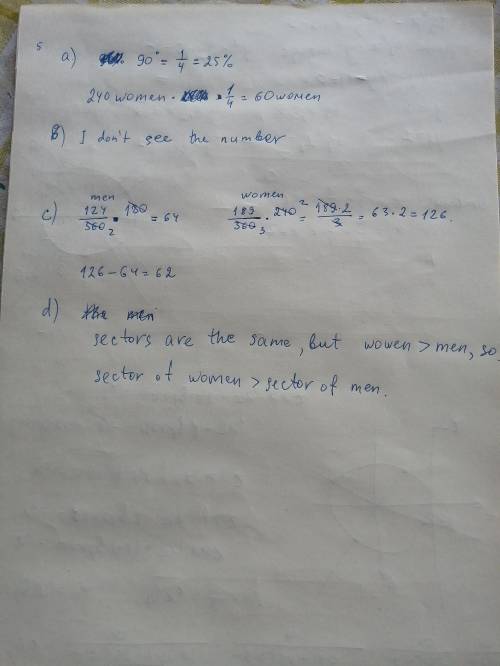 5
a) 90° = 1/4 = 25%
240 women · 1/4 = 60 women
B) I don't see the number
c) men 124/360 2 · 180 = 64 women 189/360 3 · 240 2 = 189·2/3 = 63·2 = 126.
126 - 64 = 62
d) the men
sectors are the same, but women > men, so
sector of women > sector of men.